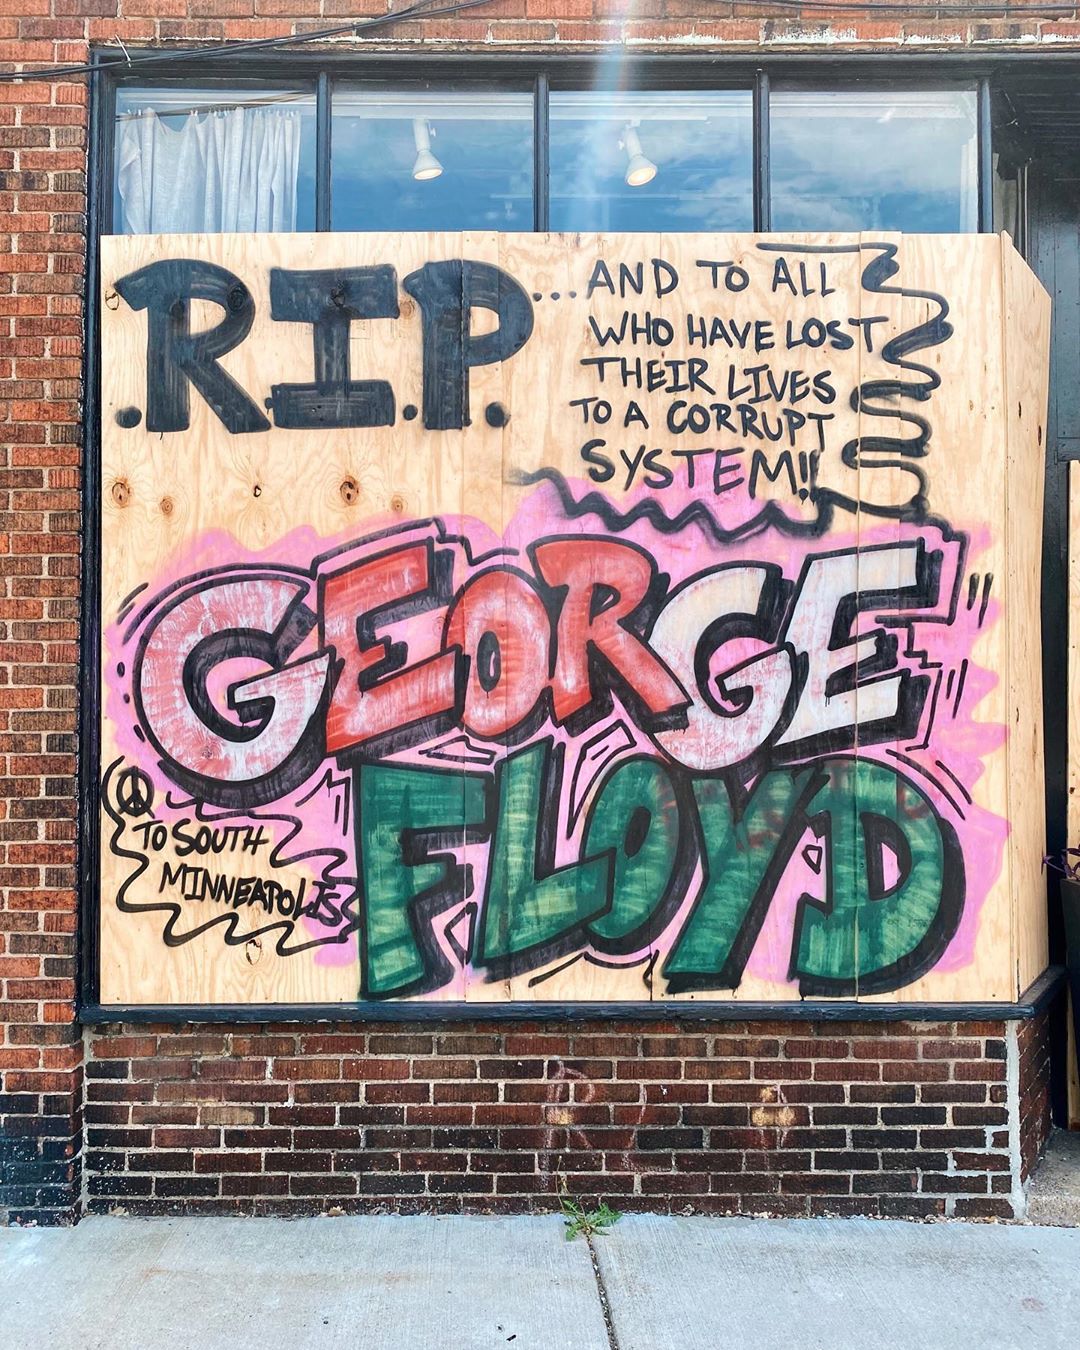 .R.I.P.
...AND TO ALL
WHO HAVE LOST
THEIR LIVES
TO A CORRUPT
SYSTEM!!
GEORGE
FLOYD
TO SOUTH
MINNEAPOLIS